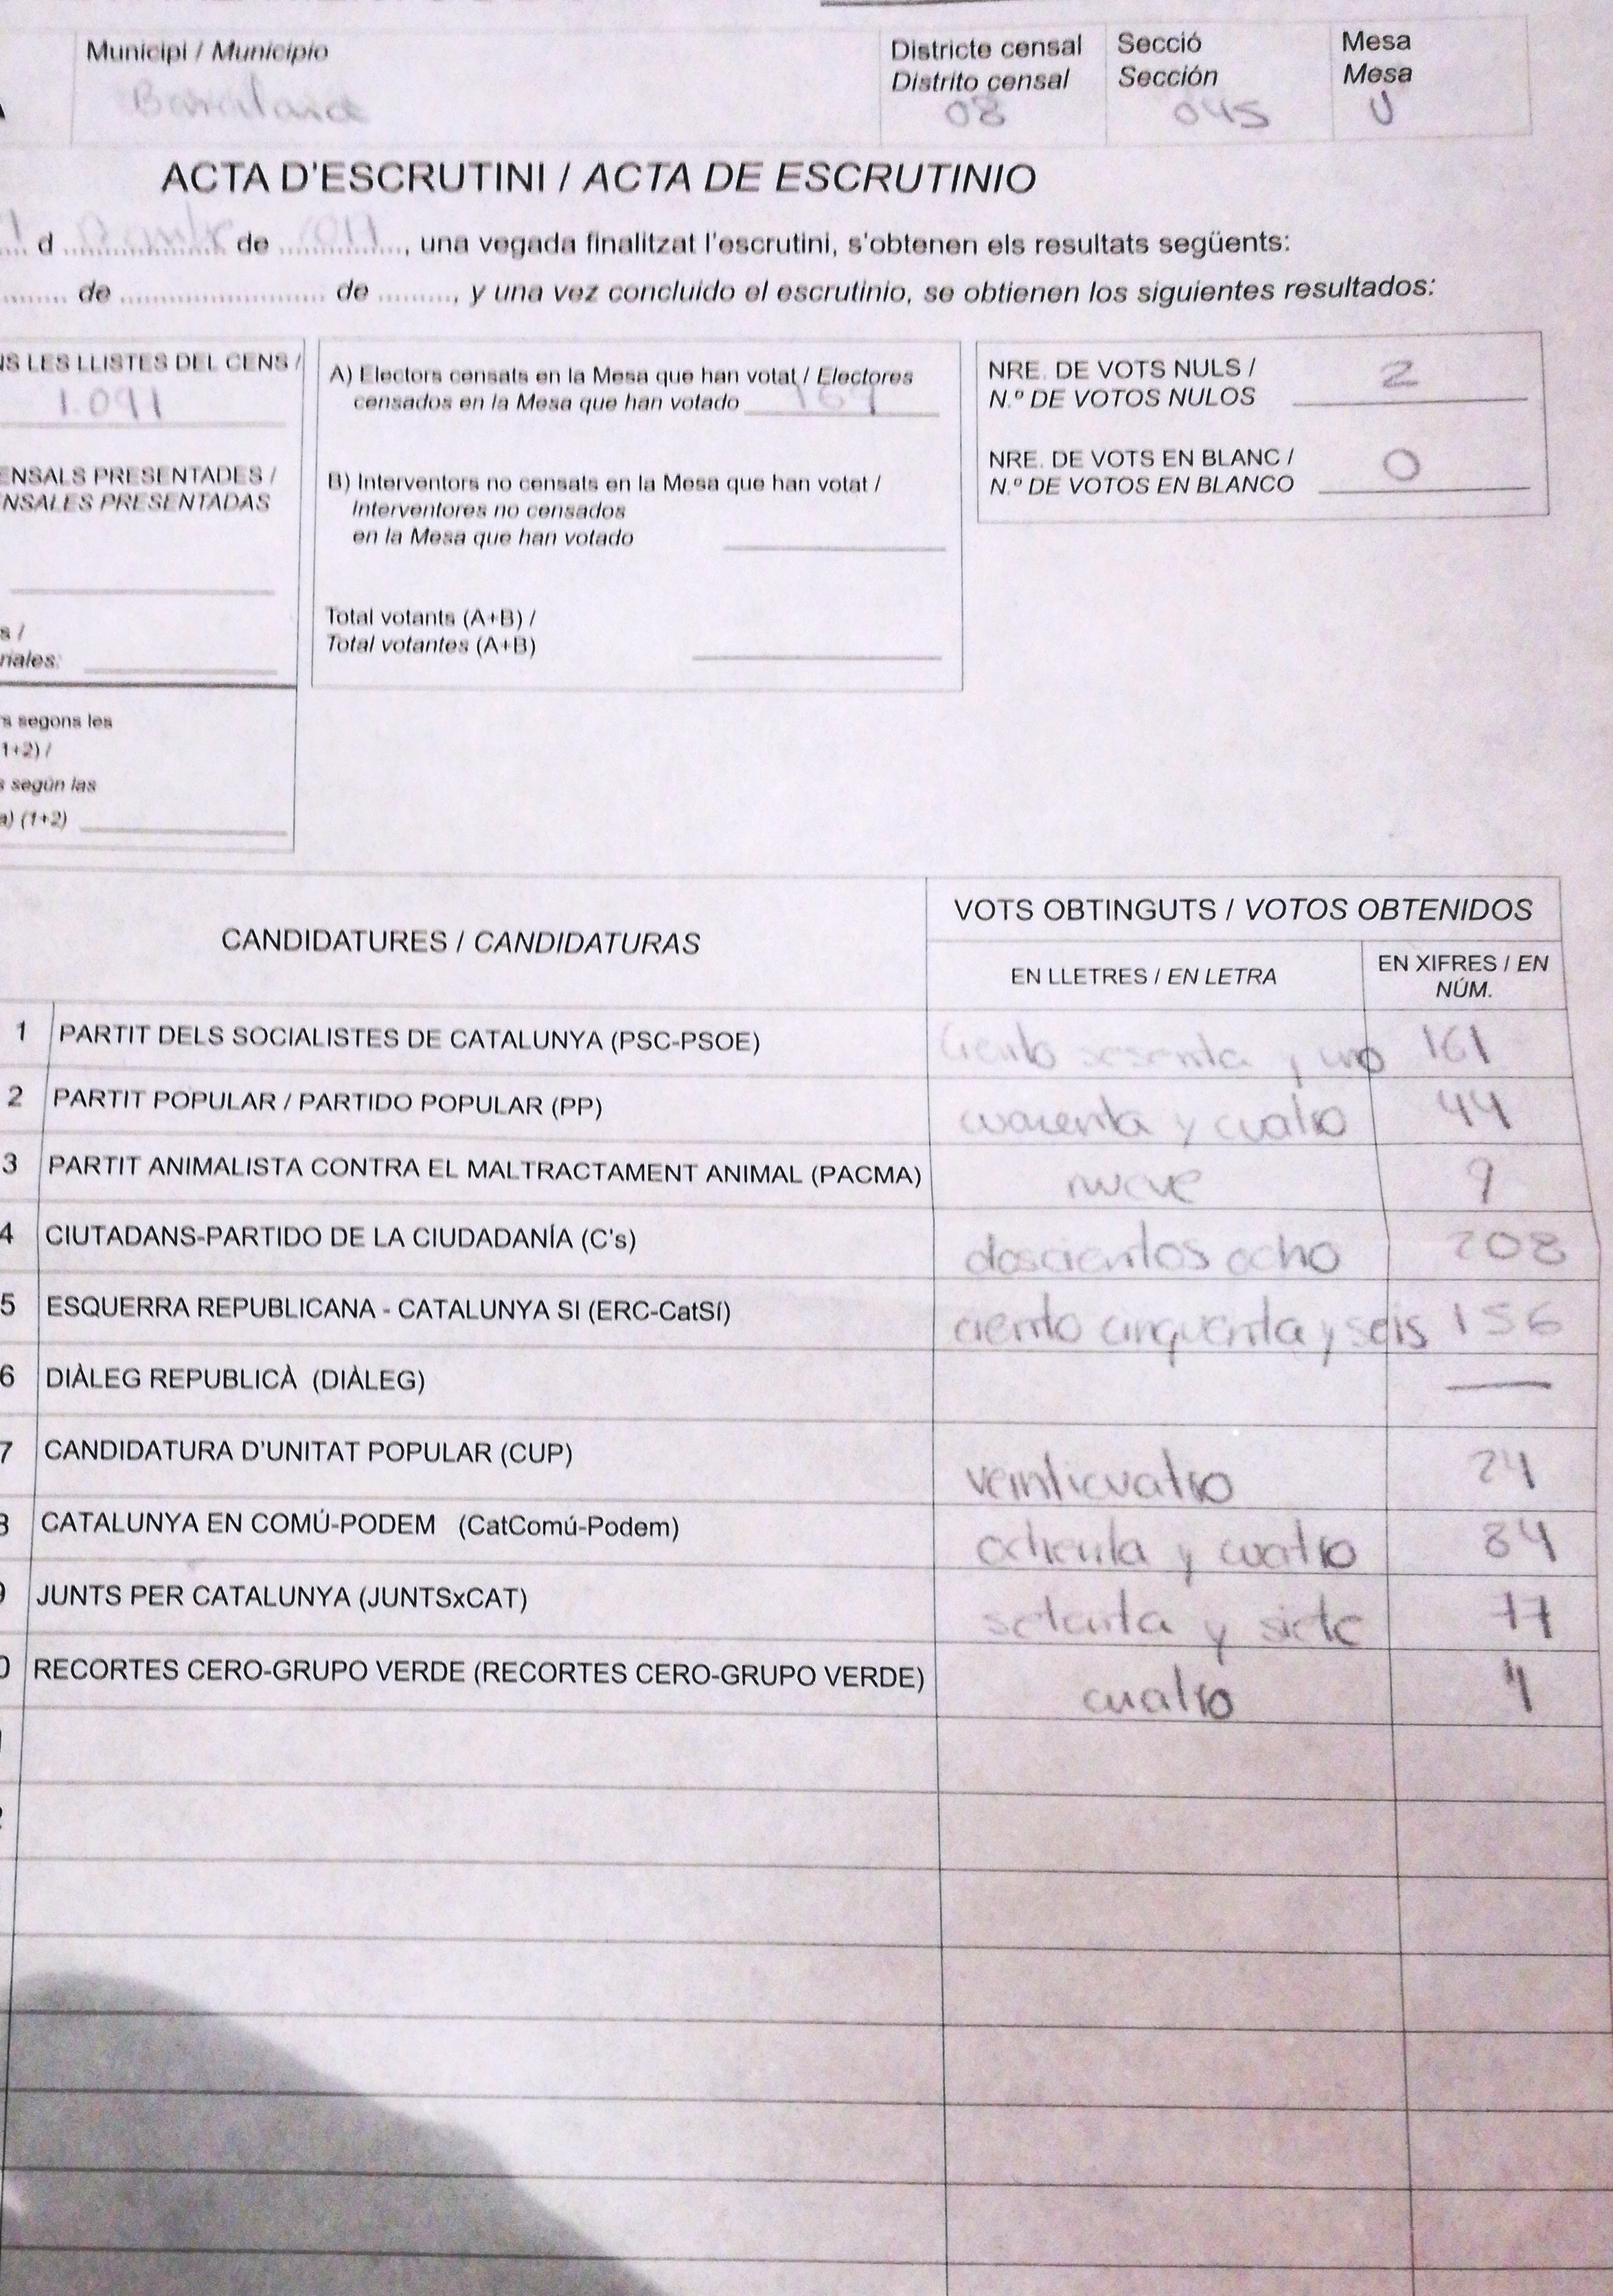 Municipi / Municipio
Districte censal
Secció
Mesa
Distrito censal
Sección
Mesa
Barcelona
08
045
U
ACTA D'ESCRUTINI / ACTA DE ESCRUTINIO
d de , una vegada finalitzat l'escrutini, s'obtenen els resultats següents:
de de , y una vez concluido el escrutinio, se obtienen los siguientes resultados:
LES LLISTES DEL CENS /
1.091
PRESENTADES /
PRESENTADAS
segons les
1+2) /
según las
(1+2)
A) Electors censats en la Mesa que han votat / Electores
censados en la Mesa que han votado
B) Interventors no censats en la Mesa que han votat /
Interventores no censados
en la Mesa que han votado
Total votants (A+B) /
Total votantes (A+B)
NRE. DE VOTS NULS /
N.º DE VOTOS NULOS 2
NRE. DE VOTS EN BLANC /
N.º DE VOTOS EN BLANCO 0
CANDIDATURES / CANDIDATURAS
VOTS OBTINGUTS / VOTOS OBTENIDOS
EN LLETRES / EN LETRA
EN XIFRES / EN
NÚM.
1 PARTIT DELS SOCIALISTES DE CATALUNYA (PSC-PSOE) ciento sesenta y uno 161
2 PARTIT POPULAR / PARTIDO POPULAR (PP) cuarenta y cuatro 44
3 PARTIT ANIMALISTA CONTRA EL MALTRACTAMENT ANIMAL (PACMA) nueve 9
4 CIUTADANS-PARTIDO DE LA CIUDADANÍA (C's) doscientos ocho 208
5 ESQUERRA REPUBLICANA - CATALUNYA SI (ERC-CatSí) ciento cinquenta y seis 156
6 DIÀLEG REPUBLICÀ (DIÀLEG) —
7 CANDIDATURA D'UNITAT POPULAR (CUP) veinticuatro 24
8 CATALUNYA EN COMÚ-PODEM (CatComú-Podem) ochenta y cuatro 84
JUNTS PER CATALUNYA (JUNTSxCAT) setenta y siete 77
0 RECORTES CERO-GRUPO VERDE (RECORTES CERO-GRUPO VERDE) cuatro 4